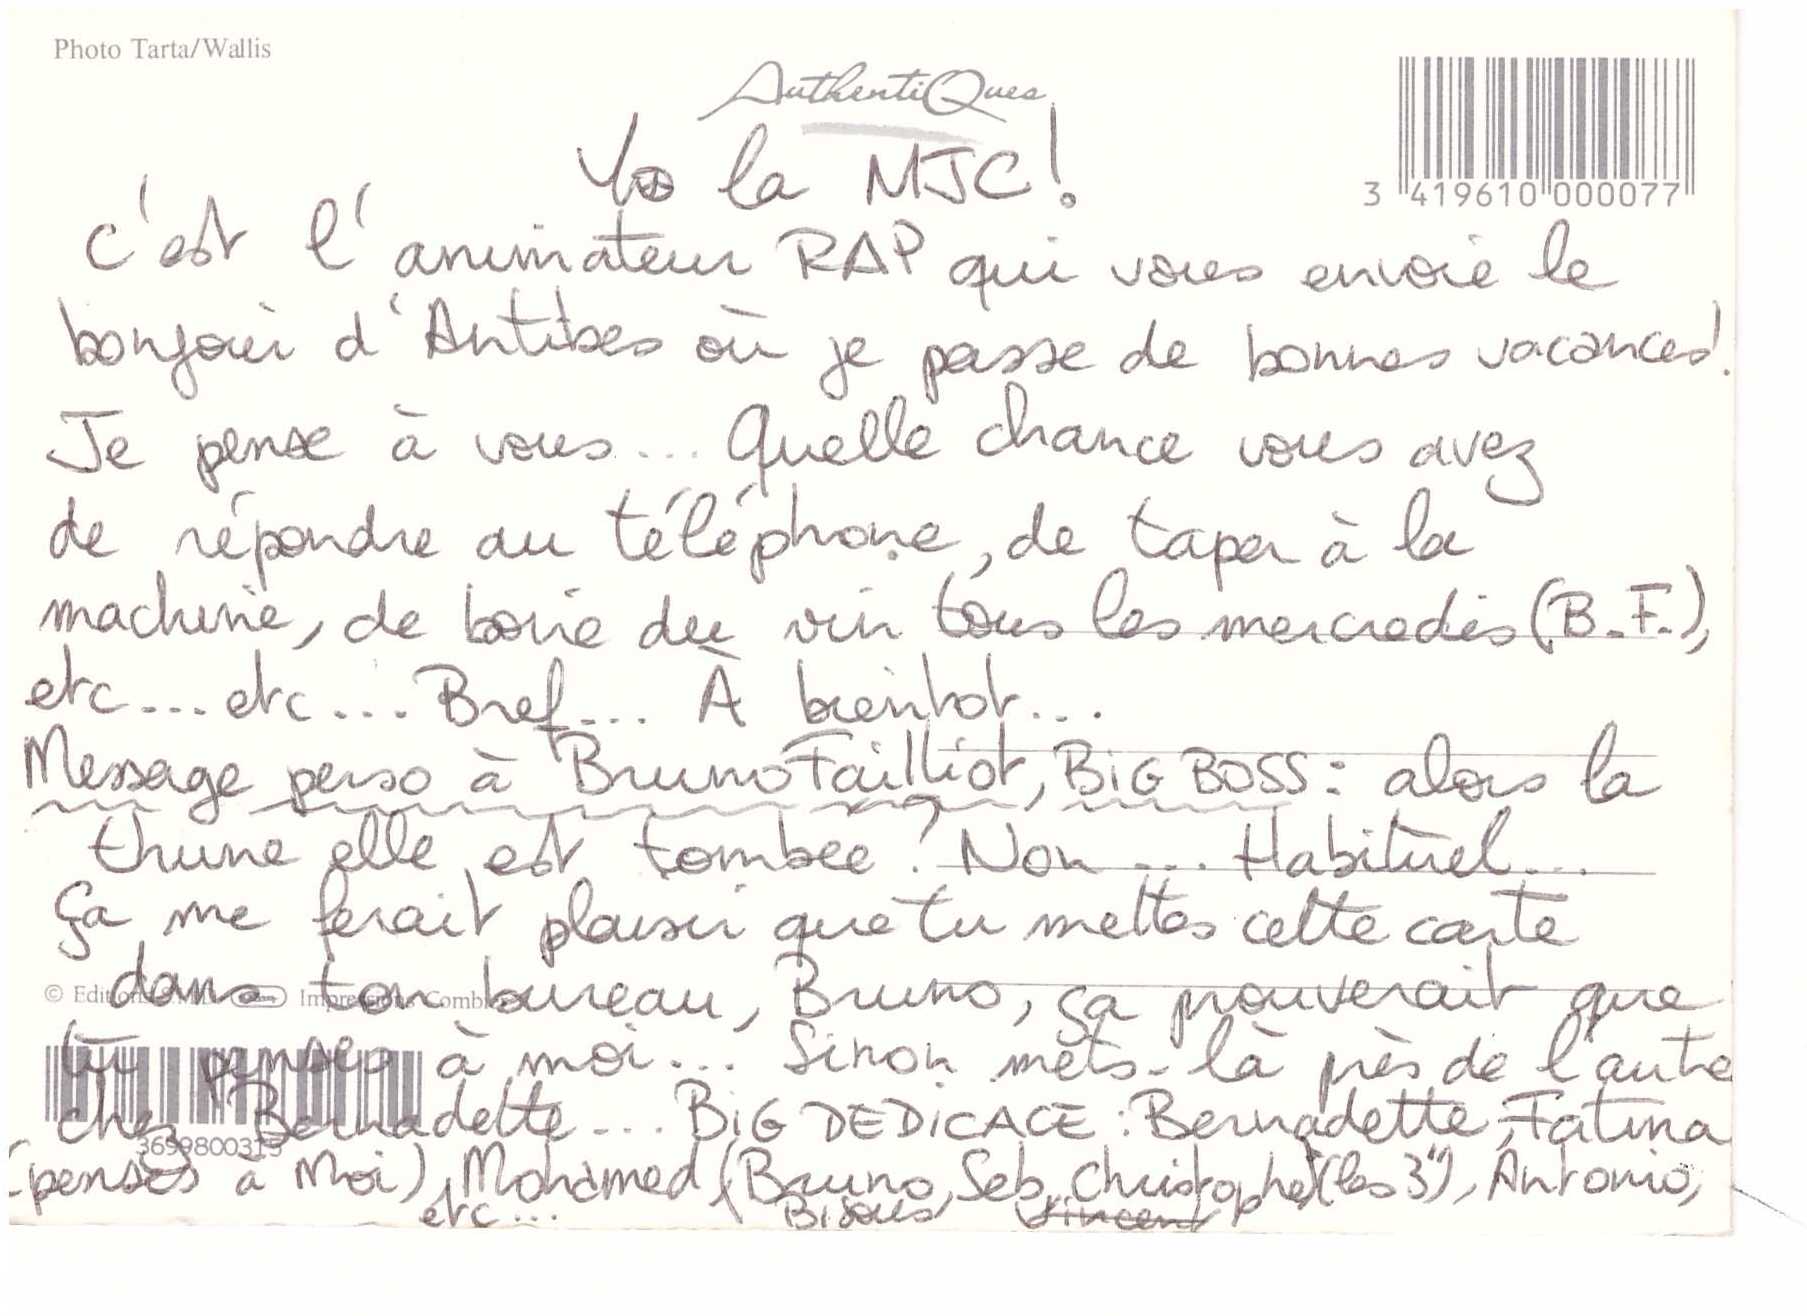 Photo Tarta/Wallis
AuthentiQues
3 419610 000077
Yo la MJC!
c'est l'animateur RAP qui vous envoie le
bonjour d'Antibes où je passe de bonnes vacances!
Je pense à vous... Quelle chance vous avez
de répondre au téléphone, de taper à la
machine, de boire du vin tous les mercredis (B.F.),
etc... etc... Bref... À bientot...
Message perso à Bruno Failliot, BiG BOSS: alors la
thune elle est tombée? Non... Habituel...
Ça me ferait plaisir que tu mettes cette carte
dans ton bureau, Bruno, ça prouverait que
© Editions Impression Combi
tu penses à moi... Sinon mets-là près de l'autre
chez Bernadette... BiG DEDiCACE: Bernadette, Fatima
3659800315
(penses à Moi), Mohamed, (Bruno, Seb, Christophe) (les 3"), Antonio,
etc... Bisous Vincent